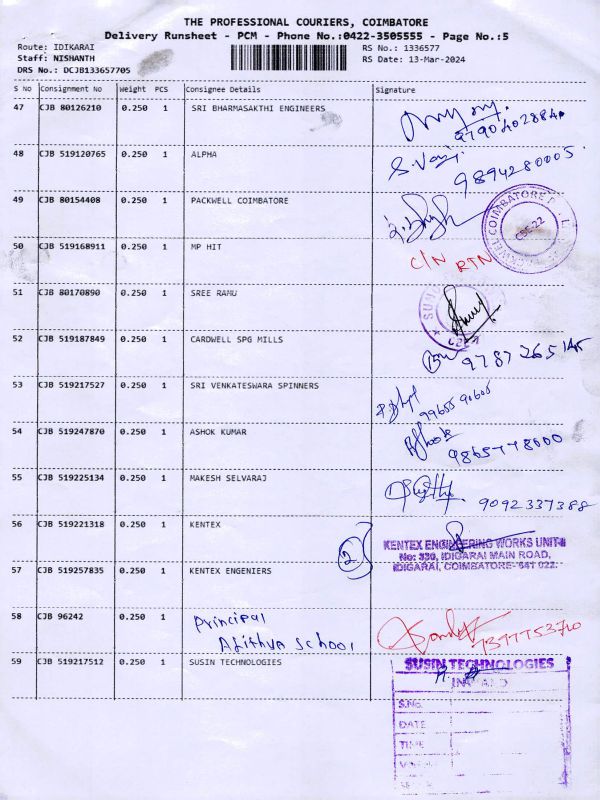 THE PROFESSIONAL COURIERS, COIMBATORE
Delivery Runsheet - PCM - Phone No.:0422-3505555 - Page No.:5
Route: IDIKARAI
RS No.: 1336577
Staff: NISHANTH
RS Date: 13-Mar-2024
DRS No.: DCJB133657705
S No Consignment No Weight PCS Consignee Details Signature
47 CJB 80126210 0.250 1 SRI BHARMASAKTHI ENGINEERS
48 CJB 519120765 0.250 1 ALPHA
9894280005
49 CJB 80154408 0.250 1 PACKWELL COIMBATORE
CBE-22
50 CJB 519168911 0.250 1 MP HIT C/N RTN
51 CJB 80170890 0.250 1 SREE RAMU
52 CJB 519187849 0.250 1 CARDWELL SPG MILLS
9787265145
53 CJB 519217527 0.250 1 SRI VENKATESWARA SPINNERS
54 CJB 519247870 0.250 1 ASHOK KUMAR
55 CJB 519225134 0.250 1 MAKESH SELVARAJ
9092337388
56 CJB 519221318 0.250 1 KENTEX
2
KENTEX ENGINEERING WORKS UNIT-II
No: 330, IDIGARAI MAIN ROAD,
IDIGARAI, COIMBATORE-641 022.
57 CJB 519257835 0.250 1 KENTEX ENGENIERS
58 CJB 96242 0.250 1 Principal
School
59 CJB 519217512 0.250 1 SUSIN TECHNOLOGIES
SUSIN TECHNOLOGIES
INWARD
S.No.
DATE
TIME